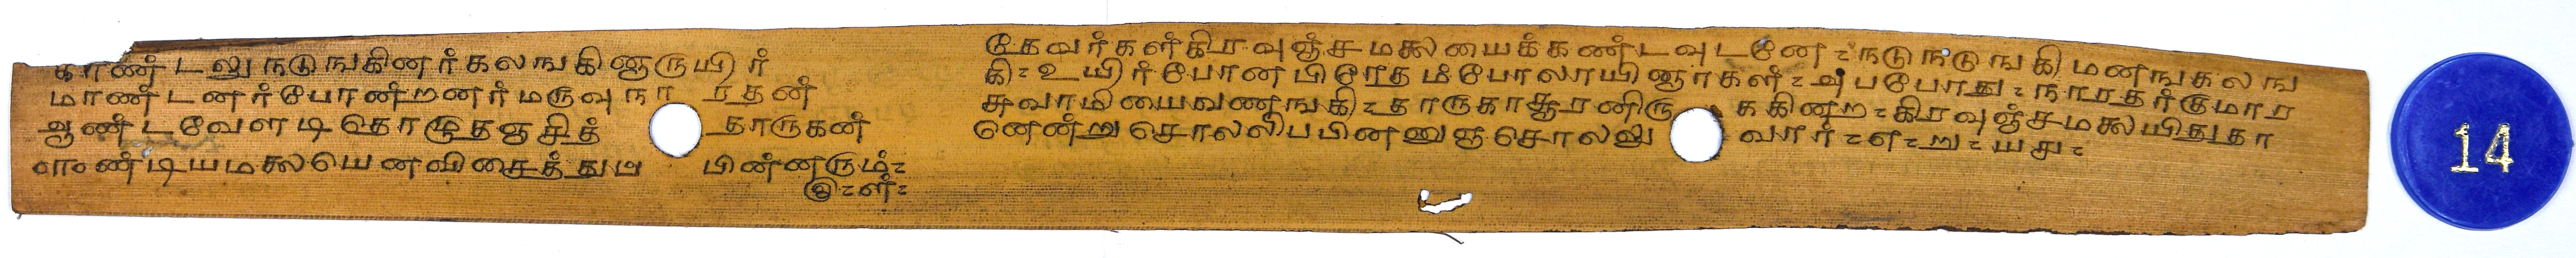 காண்டலு நடுநங்கினர்கலங்கினாருயிர்
மாண்டனர்போன்றனர் மருவு நா ரதன்
ஆண்டவேளடிதொழூதஞசித் தாருகன்
ஈண்டியமலையெனவிசைத்துப பின்னரும்÷
௫÷ள்÷
தேவர்கள்கிரவுஞ்சமலையைக்கண்டவுடனே÷நடுநடுஙகிமனஙகலங
கி÷உயிர்போனபிரேதம்போலாயினார்கள்÷அபபோது÷நாரதர்குமார
சுவாமியைவணஙகி÷தாருகாசூரனிரு ககினற÷கிரவுஞ்சமலையிதுதா
னென்றுசொல்லிபபினனுஞசொலலு வார்÷எ÷று÷யசு÷
14